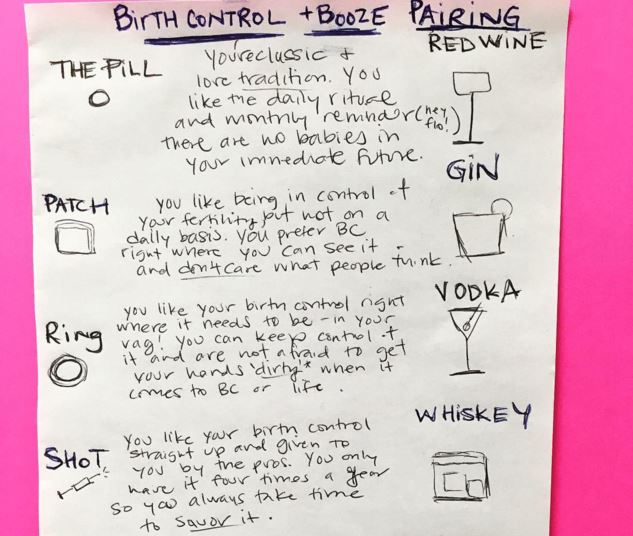 BIRTH CONTROL + BOOZE PAIRING
THE PILL
you're classic +
love tradition. You
like the daily ritual
and monthly reminder (hey, flo!)
there are no babies in
your immediate future.
RED WINE
PATCH
you like being in control of
your fertility but not on a
daily basis. You prefer BC
right where you can see it -
and don't care what people think.
GIN
Ring
you like your birth control right
where it needs to be - in your
vag! you can keep control of
it and are not afraid to get
your hands 'dirty'* when it
comes to BC or life.
VODKA
SHOT
you like your birth control
straight up and given to
you by the pros. You only
have it four times a year
so you always take time
to savor it.
WHISKEY